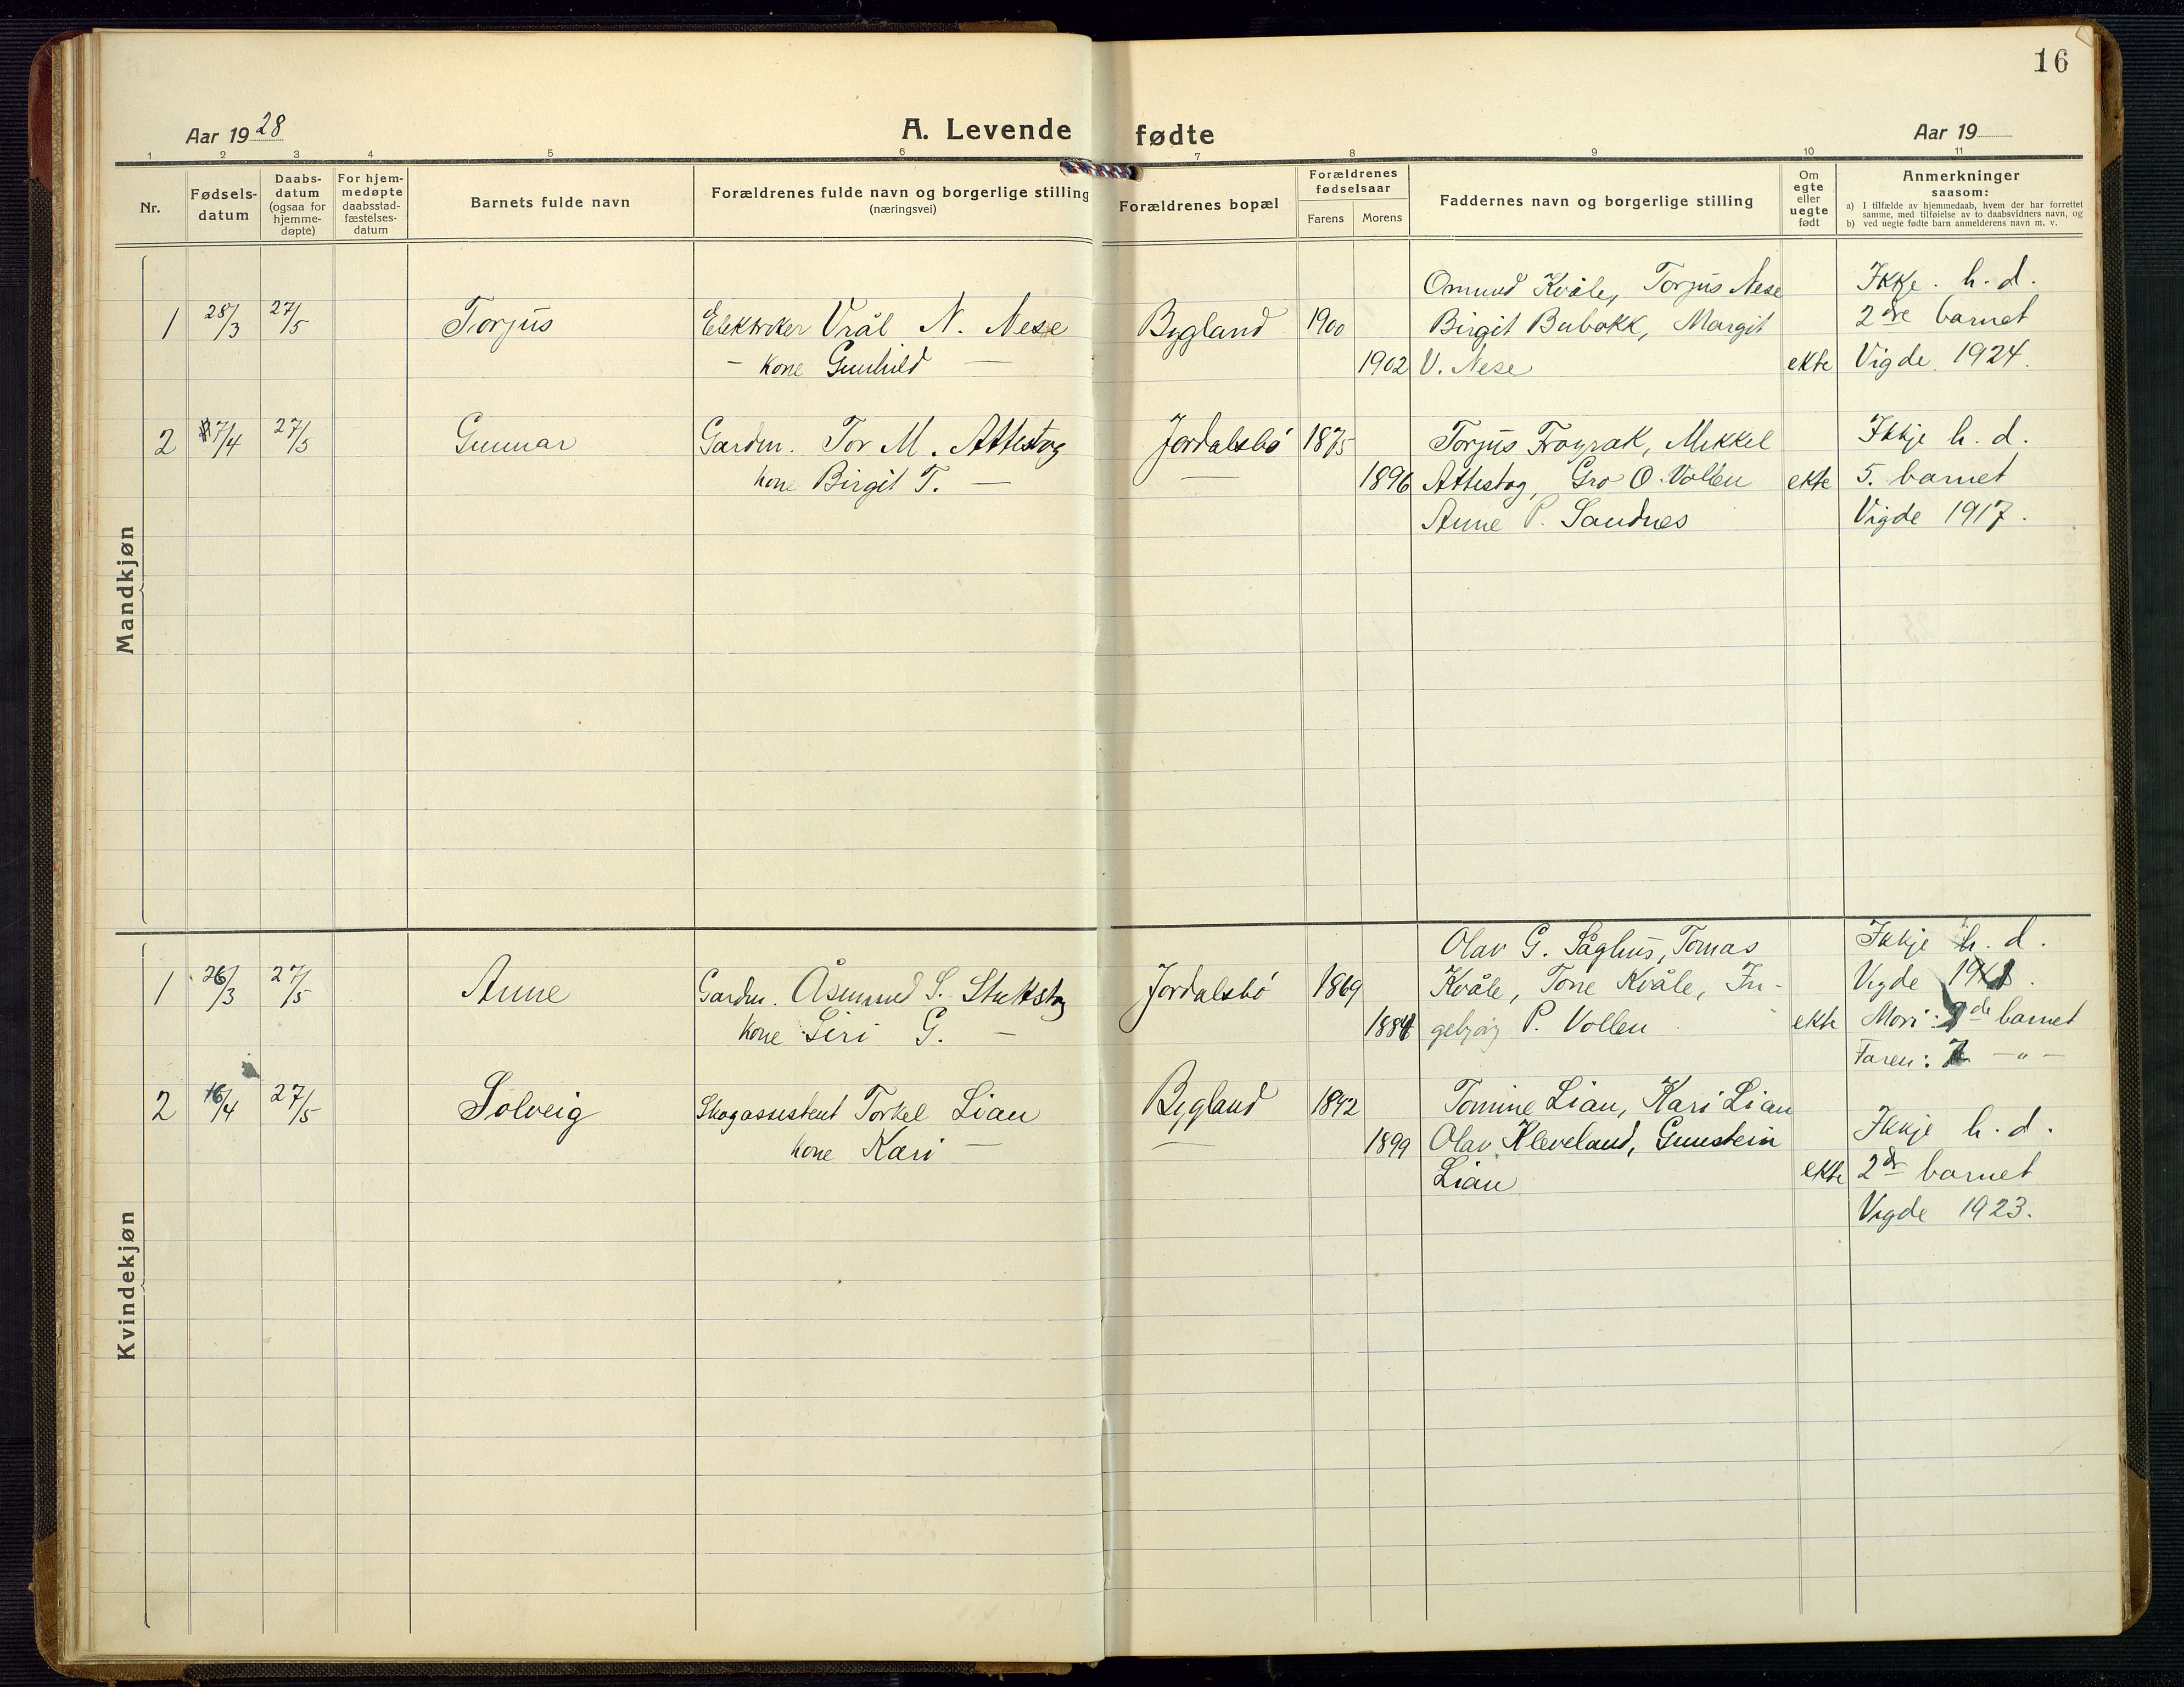 16
Aar 1928
A. Levende fødte
Aar 19
1 2 3 4 5 6 7 8 9 10 11
Nr.
Fødsels-
datum
Daabs-
datum
(ogsaa for
hjemme-
døpte)
For hjem-
medøpte
daabsstad-
fæstelses-
datum
Barnets fulde navn
Forældrenes fulde navn og borgerlige stilling
(næringsvei)
Forældrenes bopæl
Forældrenes
fødselsaar
Farens Morens
Faddernes navn og borgerlige stilling
Om
egte
eller
uegte
født
Anmerkninger
saasom:
a) I tilfælde av hjemmedaab, hvem der har forrettet
samme, med tilføielse av to daabsvidners navn, og
b) ved uegte fødte barn anmelderens navn m. v.
Mandkjøn
Omund Kvåle, Torjus Nese Ikkje. h. d.
1 28/3 27/5 Torjus Elektriker Vrål N. Nese Bygland 1900 Birgit Bubakk, Margit 2dre barnet
— kone Gunhild — 1902 V. Nese ekte Vigde 1924.
2 7/4 27/5 Gunnar Gardm. Tor M. Attestog Jordalsbø 1875 Torjus Frøyrak, Mikkel Ikkje h. d.
kone Birgit T. — — 1896 Attestog, Gro O. Vollen ekte 5. barnet
Anne P. Sandnes Vigde 1917.
Kvindekjøn
Olav G. Saghus, Tomas Ikkje h. d.
1 26/3 27/5 Anne Gardm. Åsmund S. Stuttstog Jordalsbø 1869 Kvåle, Tone Kvåle, In- Vigde
kone Siri G. — 1884 gebjørg P. Vollen ekte Mori: 9de barnet
Faren: 7 —"—
2 16/4 27/5 Solveig Skogassistent Torkel Lian Bygland 1892 Tomine Lian, Kari Lian
kone Kari — — 1899 Olav Kleveland, Gunstein Ikkje h. d.
Lian ekte 2dre barnet
Vigde 1923.